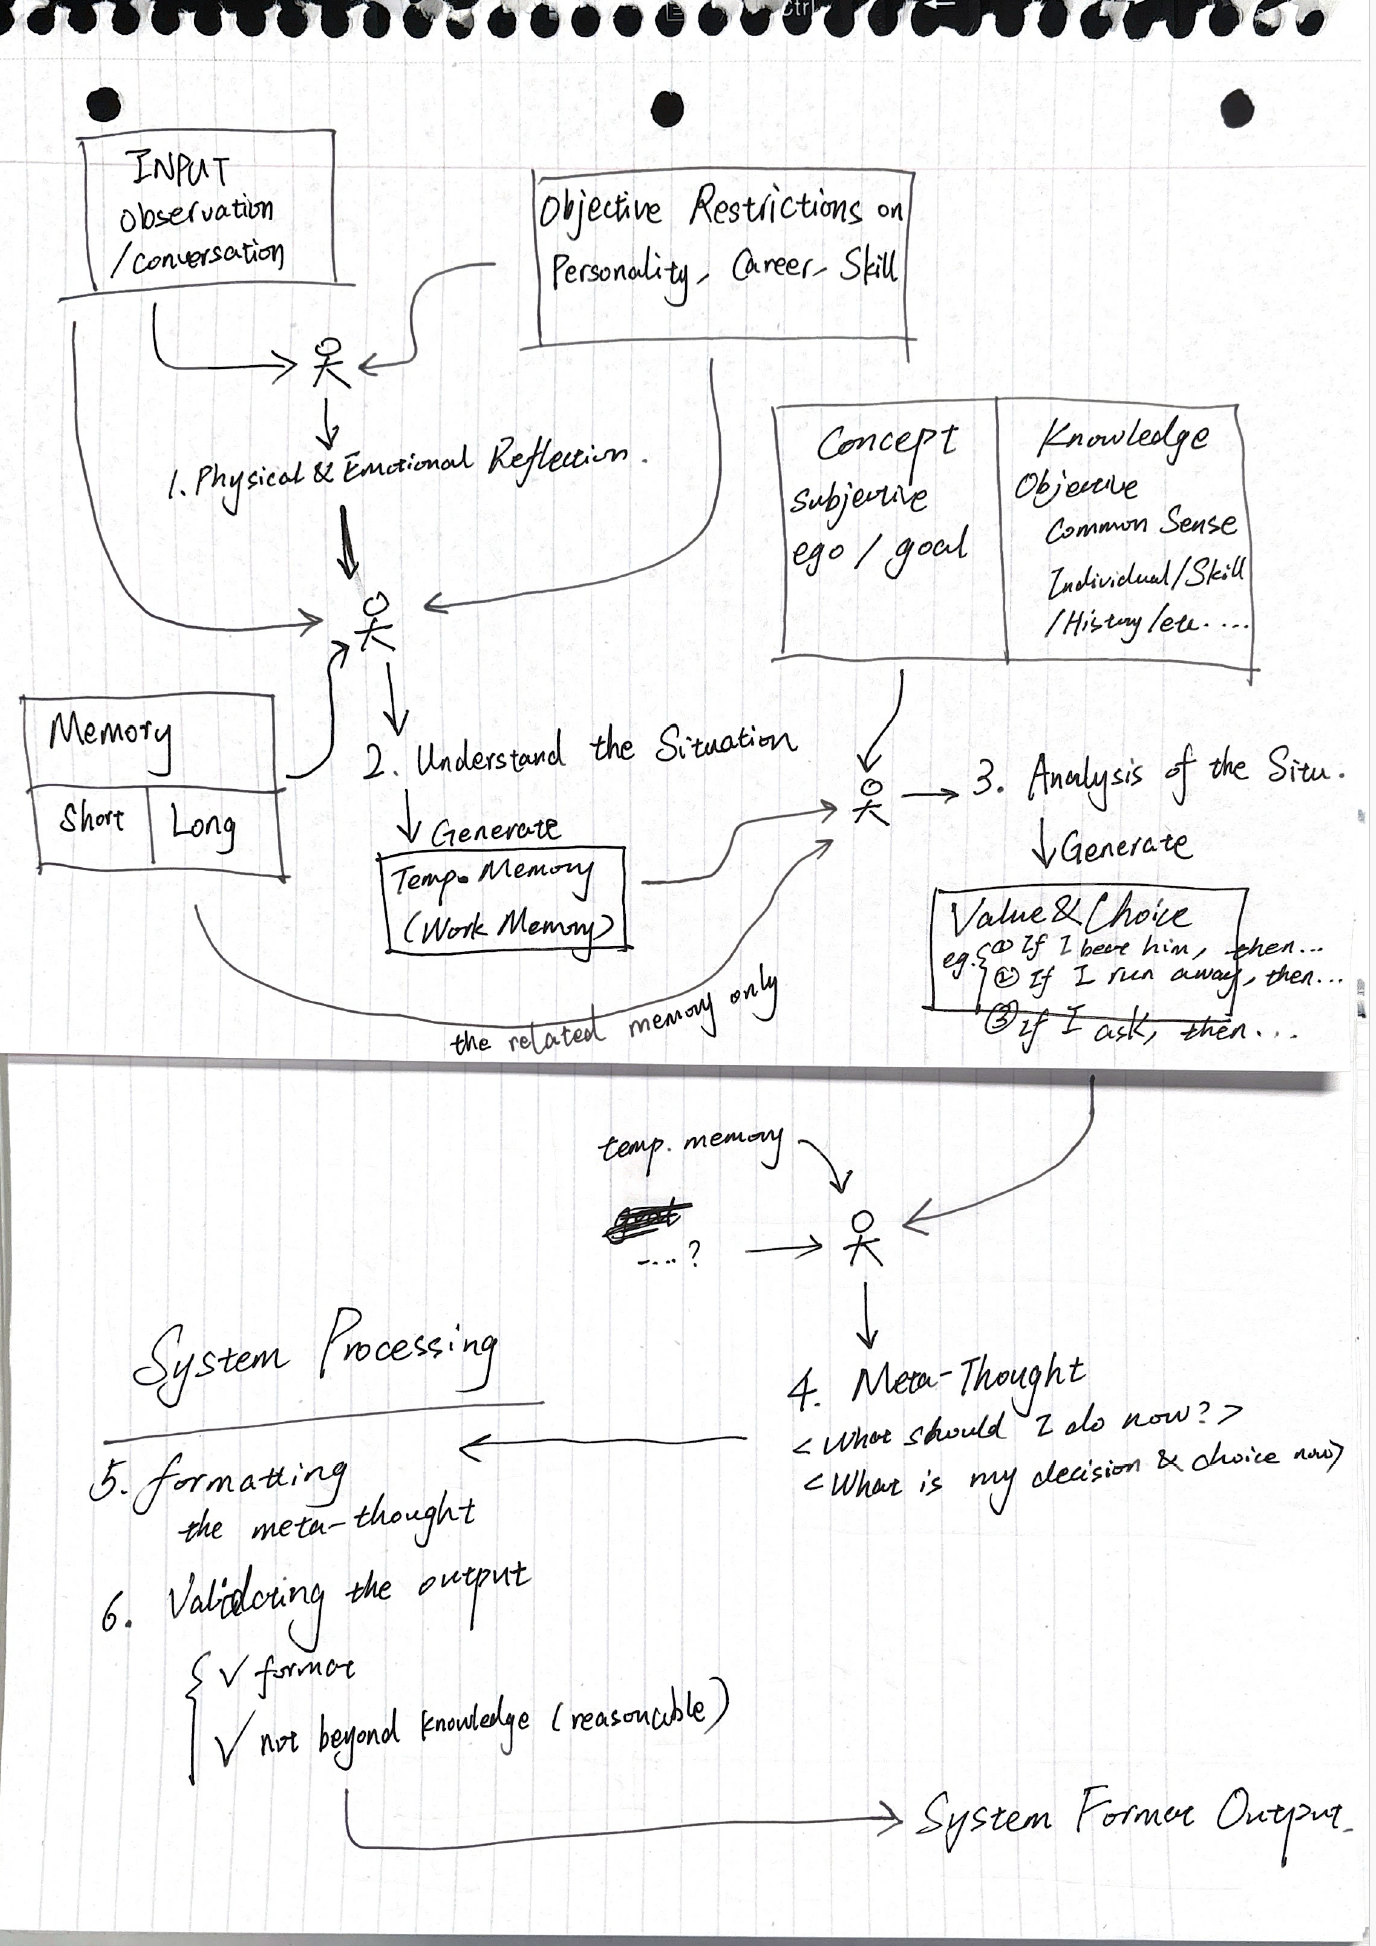 Ctrl
INPUT
Observation
/conversation
Objective Restrictions on
Personality, Career, Skill
1. Physical & Emotional Reflection.
Concept
Subjective
ego / goal
Knowledge
Objective
Common Sense
Individual/Skill
/History/etc.....
Memory
Short
Long
2. Understand the Situation
Generate
Temp. Memory
(Work Memory)
the related memory only
3. Analysis of the Situ.
Generate
Value & Choice
eg. ① If I beat him, then...
② If I run away, then...
③ If I ask, then...
temp. memory
....?
4. Meta-Thought
<What should I do now?>
<What is my decision & choice now>
System Processing
5. formatting
the meta-thought
6. Validating the output
✓ format
✓ not beyond knowledge (reasonable)
System Format Output.